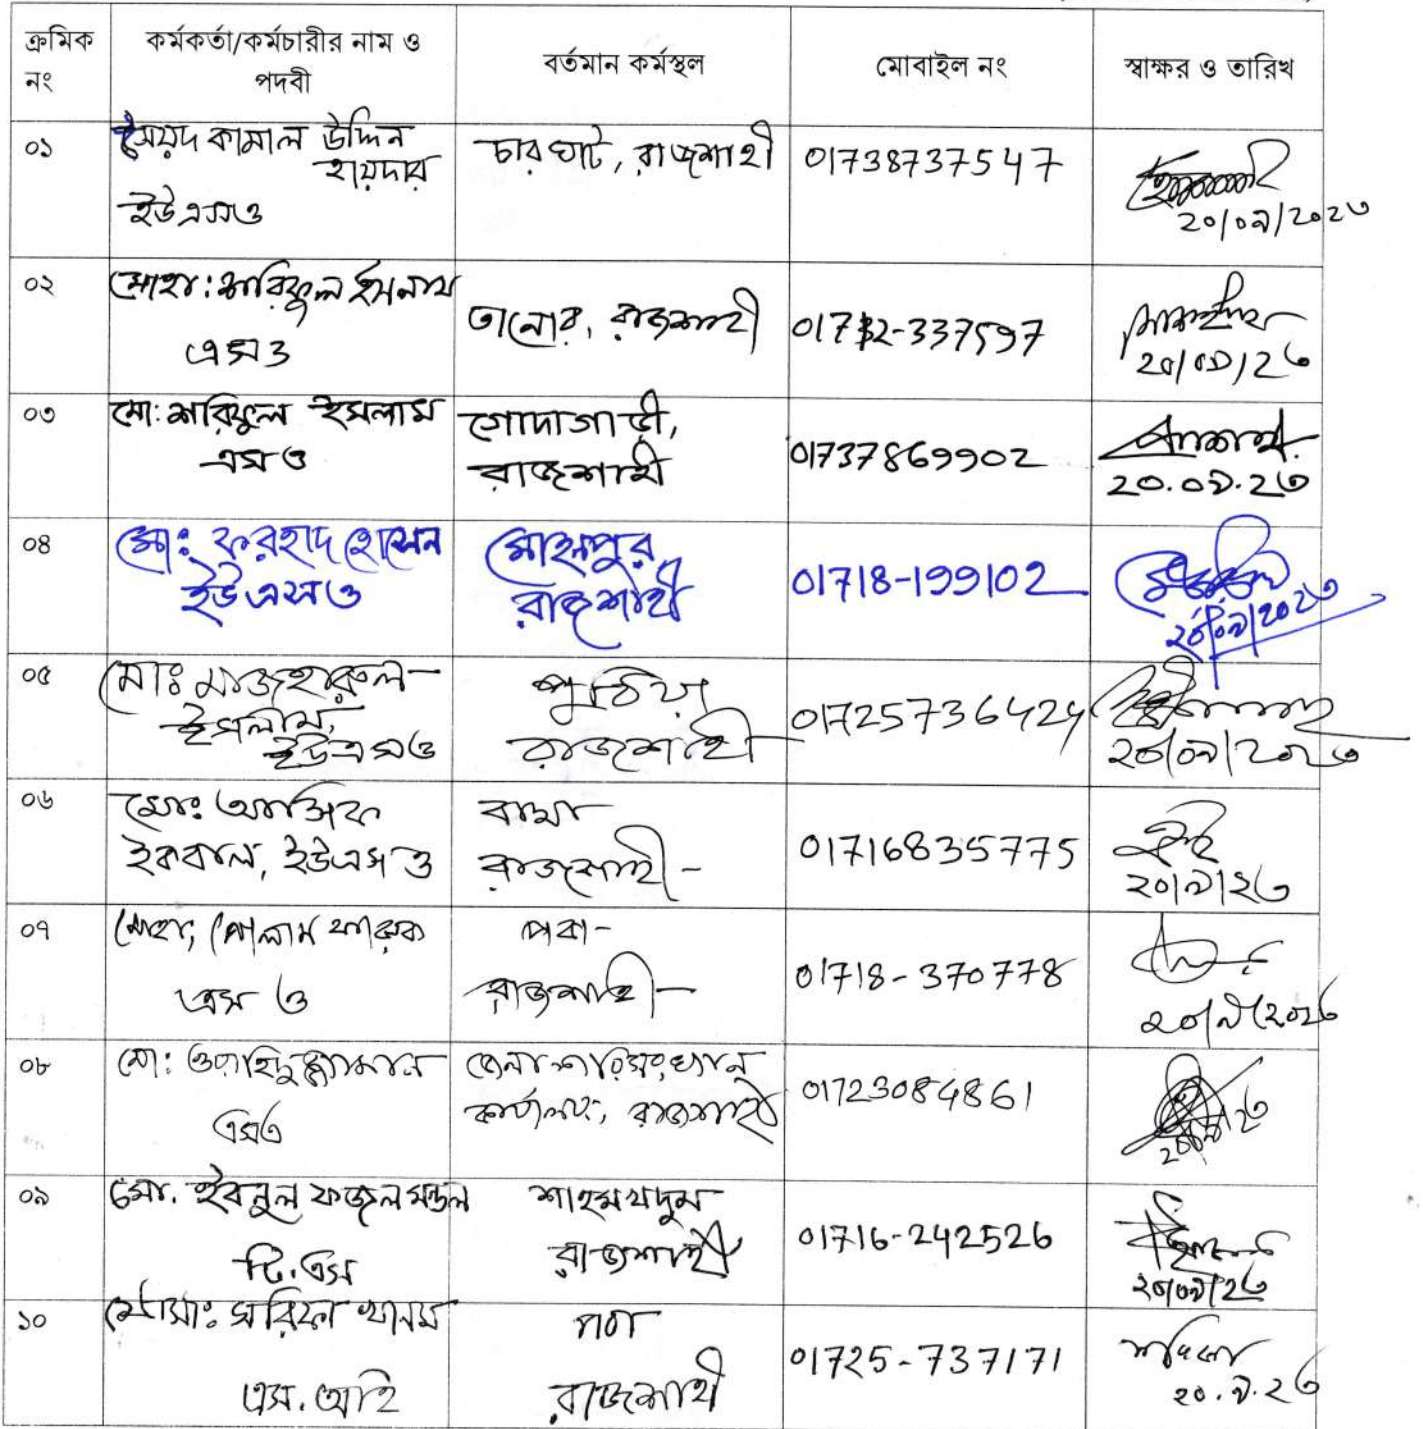 ক্রমিক নং
কর্মকর্তা/কর্মচারীর নাম ও পদবী
বর্তমান কর্মস্থল
মোবাইল নং
স্বাক্ষর ও তারিখ
০১
সৈয়দ কামাল উদ্দিন
হায়দার
ইউএসও
চারঘাট, রাজশাহী
01738737547
২০/০৯/২০২৩
০২
মোহা: শরিফুল ইসলাম
এসও
তানোর, রাজশাহী
২০/০৯/২৩
০৩
মো: শরিফুল ইসলাম
এসও
গোদাগাড়ী,
রাজশাহী
01737869902
২০.০৯.২৩
০৪
মো: ফরহাদ হোসেন
ইউএসও
মোহনপুর
রাজশাহী
01718-199102
২০/০৯/২০২৩
০৫
মোঃ মাজহারুল
ইসলাম,
ইউএসও
পুঠিয়া
রাজশাহী
01725736424
২০/০৯/২০২৩
০৬
মোঃ আসিফ
ইকবাল, ইউএসও
বাঘা
রাজশাহী -
01716835775
২০/৯/২৩
০৭
মোহা: গোলাম ফারুক
এস ও
পবা -
রাজশাহী -
01718-370778
২০/৯/২০২৩
০৮
মো: ওয়াহিদুজ্জামান
এসও
জেলা পরিসংখ্যান
কার্যালয়, রাজশাহী
01723084861
২০/৯/২৩
০৯
মো. ইবনুল ফজল মন্ডল
টি.এস
শাহমখদুম
রাজশাহী
01716-242526
২০/০৯/২৩
১০
মোসাঃ শরিফা খানম
এস. আই
পবা
রাজশাহী
01725-737171
২০.৯.২৩